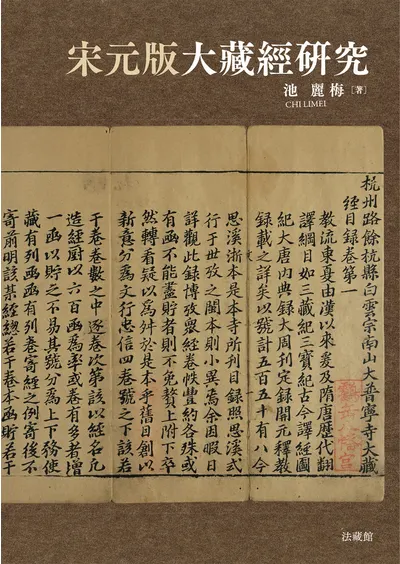 宋元版大藏經研究
池 麗梅 [著]
CHI LIMEI
杭州路餘杭縣白雲宗南山大普寧寺大藏
經目錄卷第一
教流東夏由漢以來爰及隋唐歷代翻
譯綱目如三藏紀三寶紀古今譯經圖
紀大唐內典錄大周刊定錄開元釋教
錄載之詳矣以號計五百五十有八今
思溪淅本是本寺所刊目錄照思溪式
行于世攷之閩本則小異焉余因暇日
詳觀此錄博攷衆經卷帙豐約各殊或
有函不能蓋貯者則不免贅上附下卒
然轉看疑以為舛於是本乎舊目創以
新意分為文行忠信四卷號之下該若
干卷卷數之中逐卷次第該以經名凡
造經厨以六百函為率或卷有多者增
一函以貯之不易其號分為上下務使
藏有列函函有列卷寄經之例寄後不
寄前明該某經總若干卷本函貯若干
法藏館